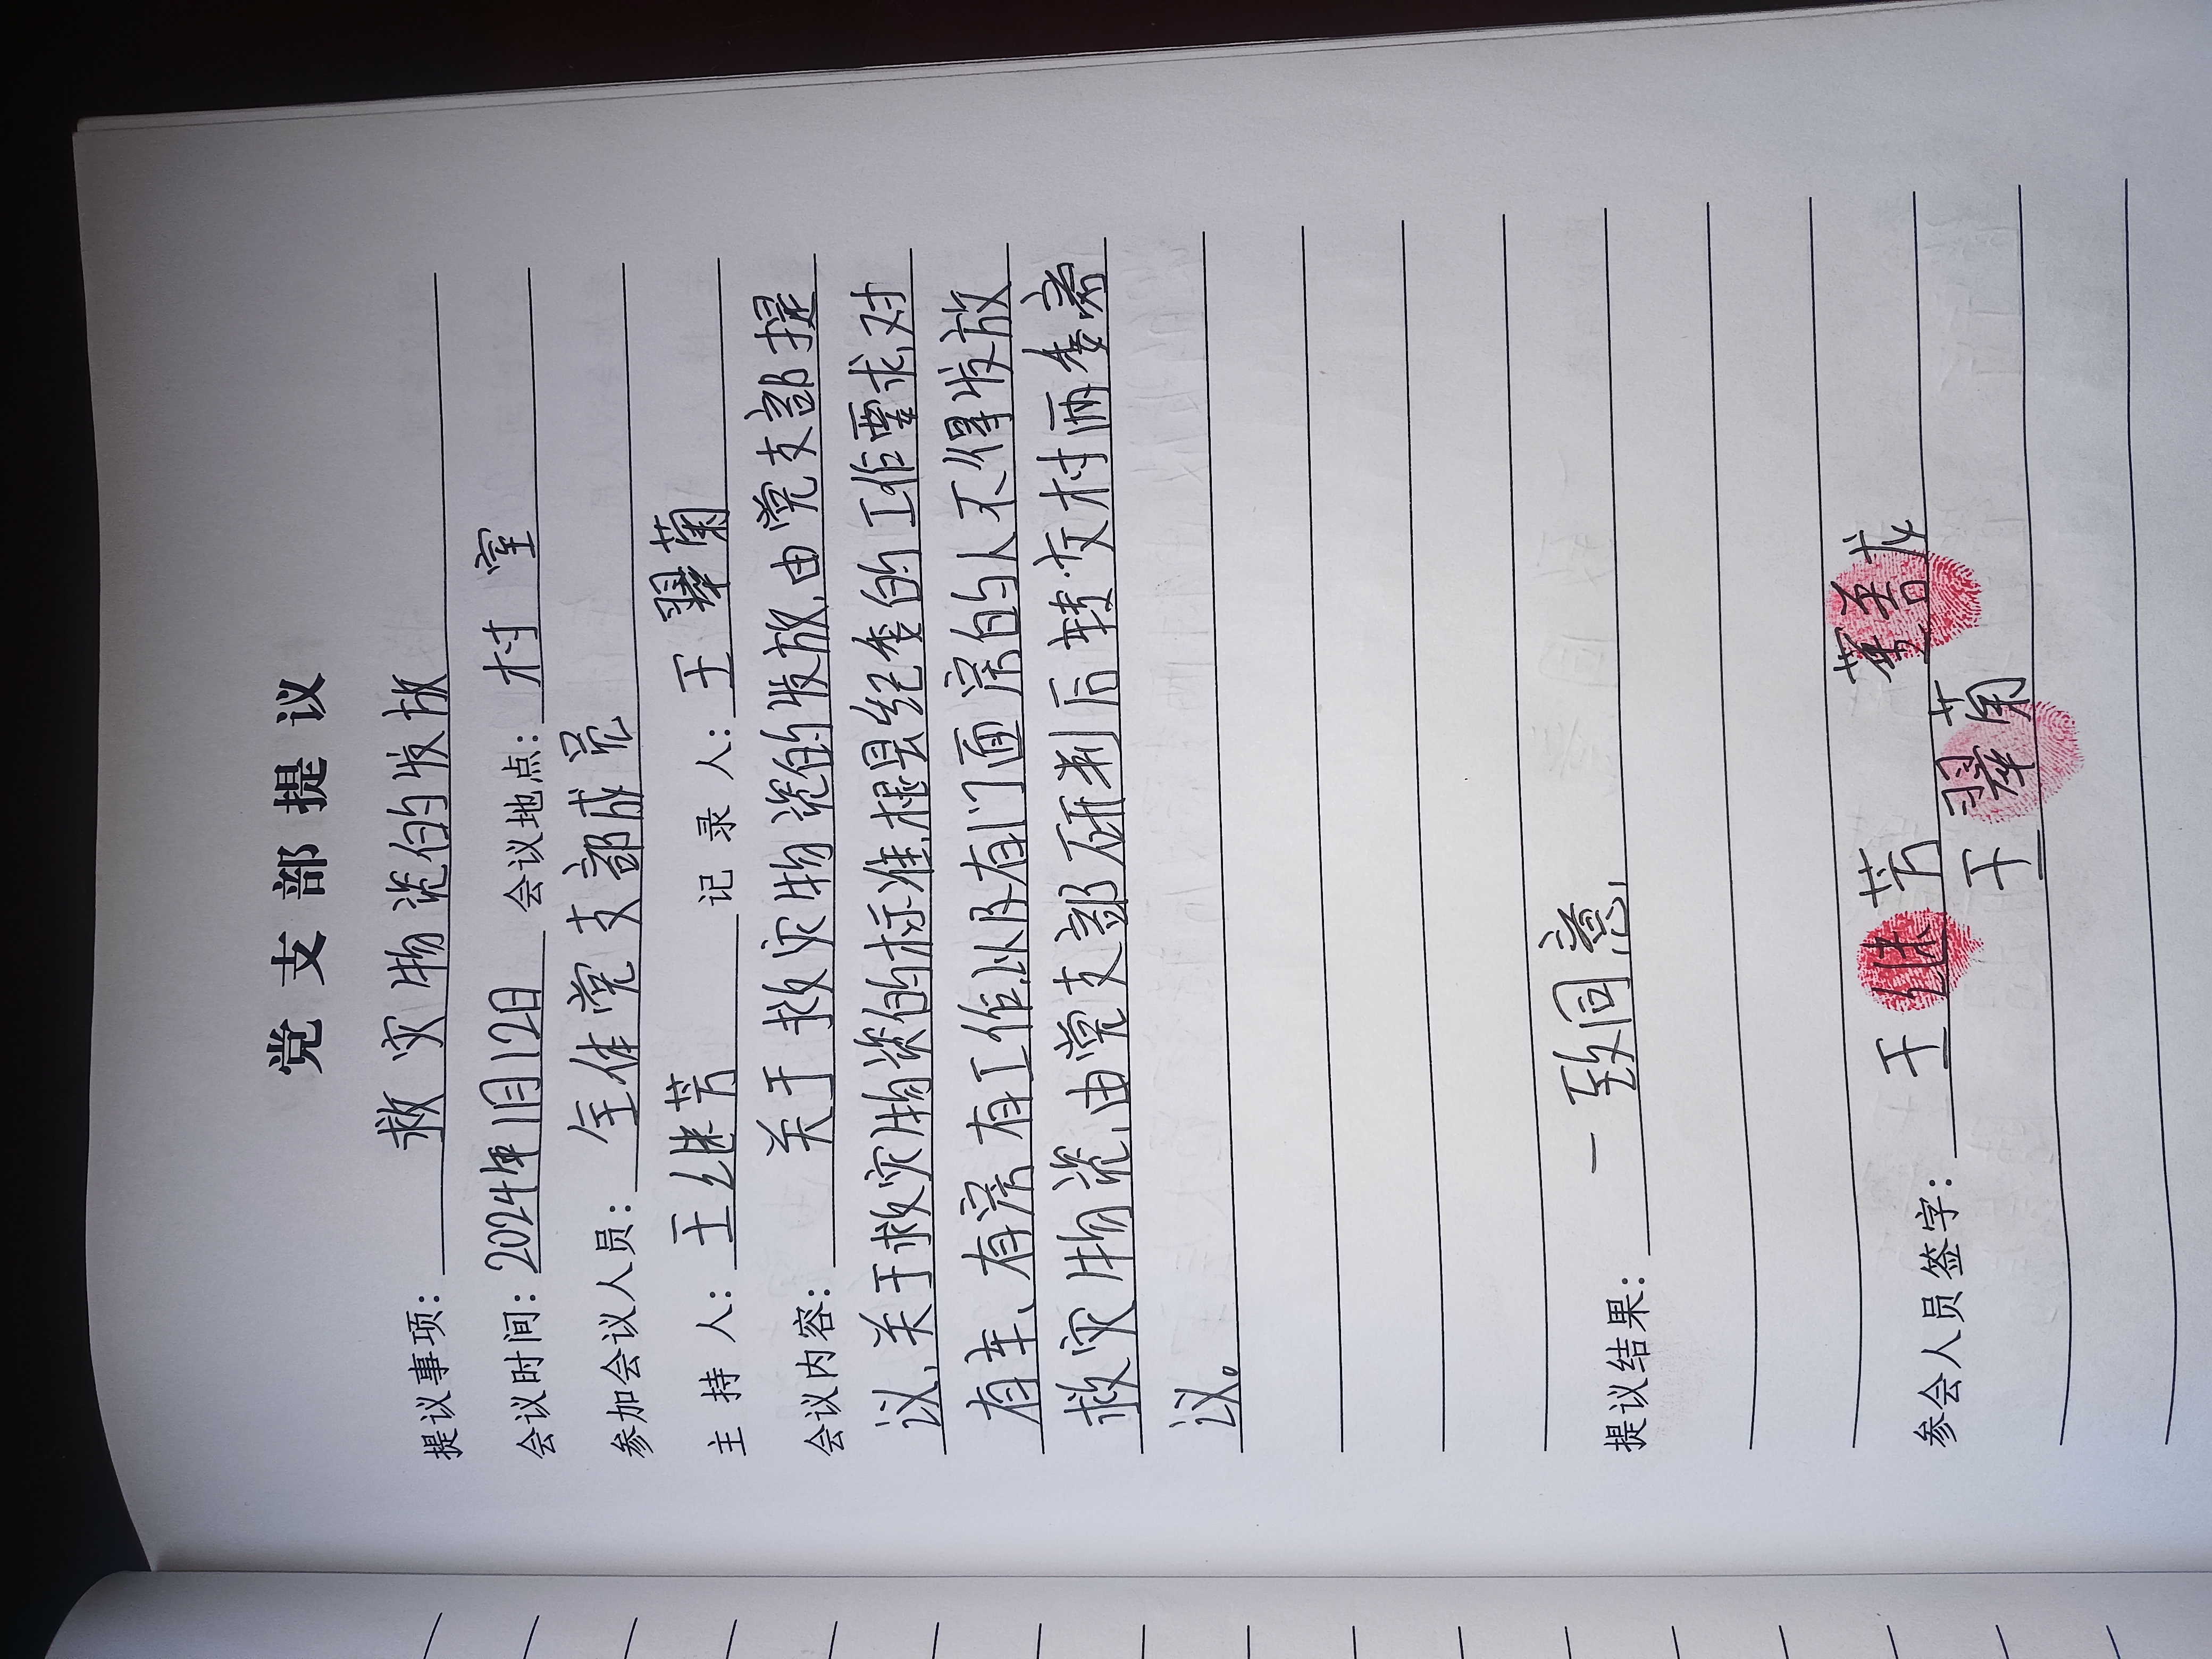 党支部提议
提议事项：救灾物资的发放
会议时间：2024年1月12日 会议地点：村室
参加会议人员：全体党支部成员
主持人：王继芳 记录人：王翠菊
会议内容：关于救灾物资的发放,由党支部提
议,关于救灾物资的标准,根县纪委的工作需求,对
有车、有房、有工作,以及有门面房的人不得发放
救灾物资,由党支部研判后转交村两委商
议。
提议结果：一致同意,
参会人员签字：王继芳
王翠菊